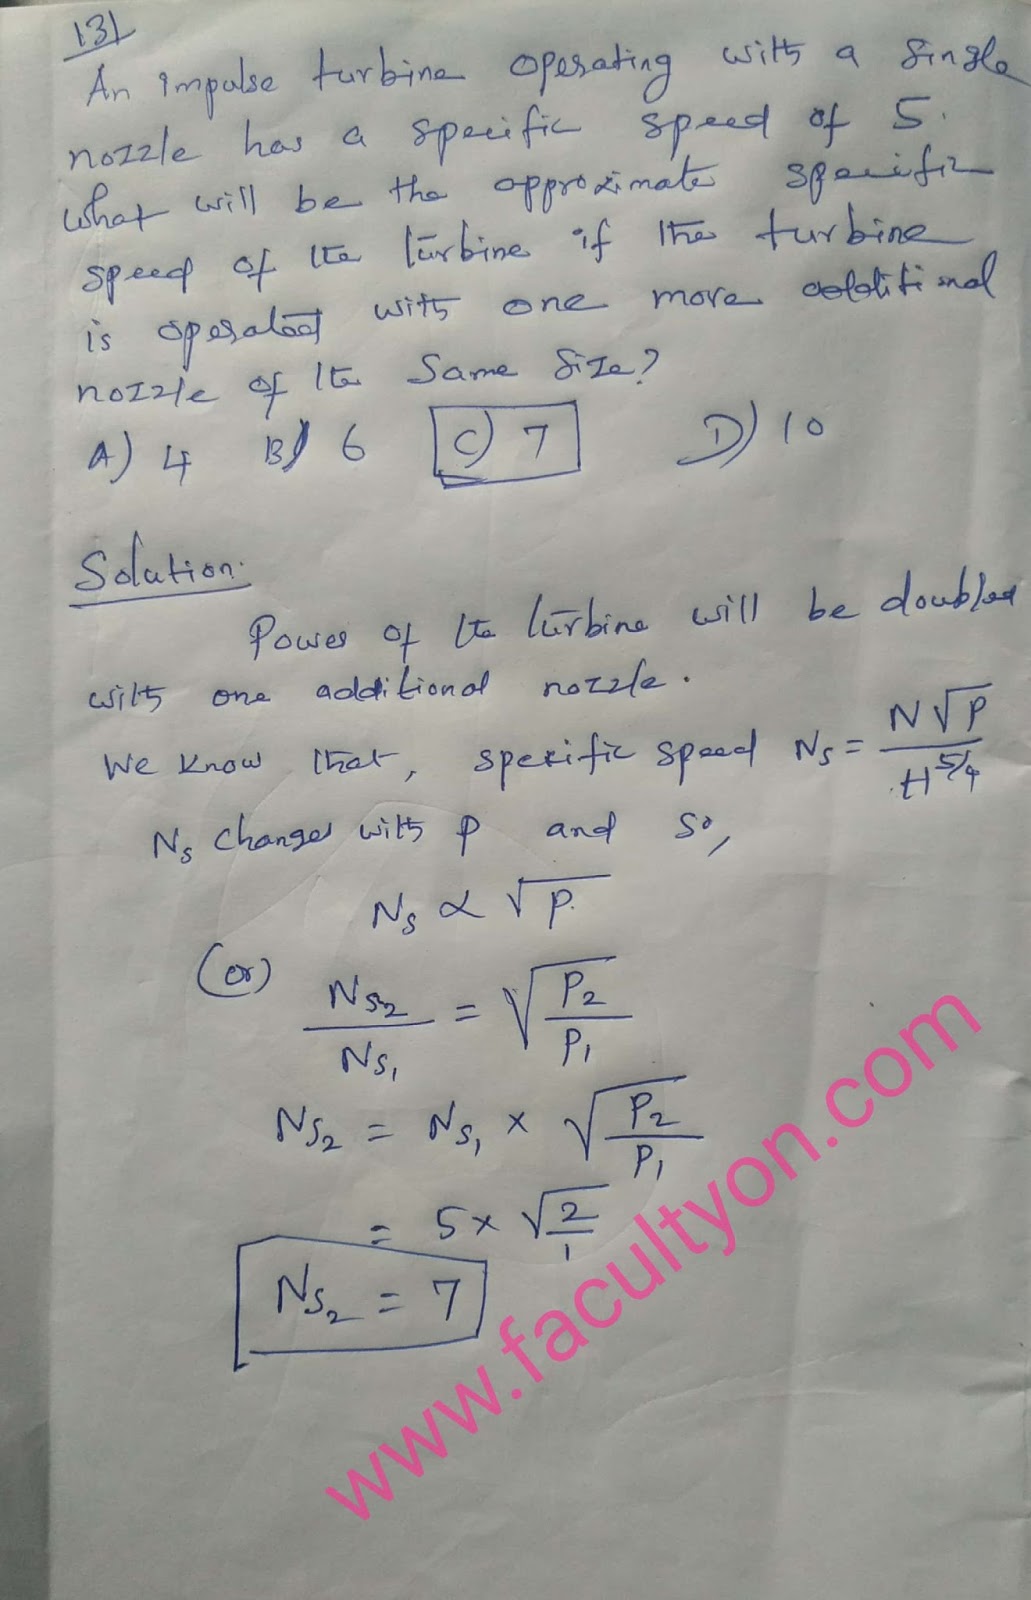 131
An impulse turbine operating with a single
nozzle has a specific speed of 5.
What will be the approximate specific
speed of the turbine if the turbine
is operated with one more additional
nozzle of the same size?
A) 4 B) 6 C) 7 D) 10
Solution:
Power of the turbine will be doubled
with one additional nozzle.
We know that, specific speed Ns = N√P / H^5/4
Ns changes with P and so,
Ns ∝ √P.
(or)
Ns₂ / Ns₁ = √(P₂ / P₁)
Ns₂ = Ns₁ × √(P₂ / P₁)
= 5 × √(2 / 1)
Ns₂ = 7
www.facultyon.com